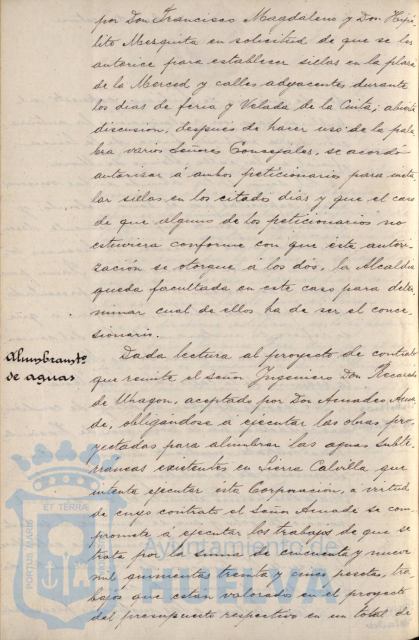 por Don Francisco Magdaleno y Don Hipó-
lito Mezquita en solicitud de que se les
autorice para establecer sillas en la plaza
de la Merced y calles adyacentes durante
los dias de feria y Velada de la Cinta; abierta
discusion, después de hacer uso de la pala-
bra varios Señores Concejales, se acordó
autorizar á ambos peticionarios para insta-
lar sillas en los citados dias y que el caso
de que alguno de los peticionarios no
estuviera conforme con que ésta autori-
zación se otorgue á los dos, la Alcaldía
queda facultada en este caso para deter-
minar cual de ellos ha de ser el conce-
sionario.
Alumbramto
de aguas
Dada lectura al proyecto de contrato
que remite el señor Ingeniero Don Recaredo
de Uhagon, aceptado por Don Amadeo
obligándose a ejecutar las obras pro-
yectadas para alumbrar las aguas subte-
rraneas existentes en Sierra Calvilla que
intenta ejecutar esta Corporacion, á virtud
de cuyo contrato el Señor se com-
promete á ejecutar los trabajos de que se
trata por la suma de cincuenta y nueve
mil quinientas treinta y cinco pesetas, tra-
bajos que están valorados en el proyecto
del presupuesto respectivo en un total de
Ayuntamiento de
HUELVA
PORTUS MARIS
ET TERRAE
CUSTODIA